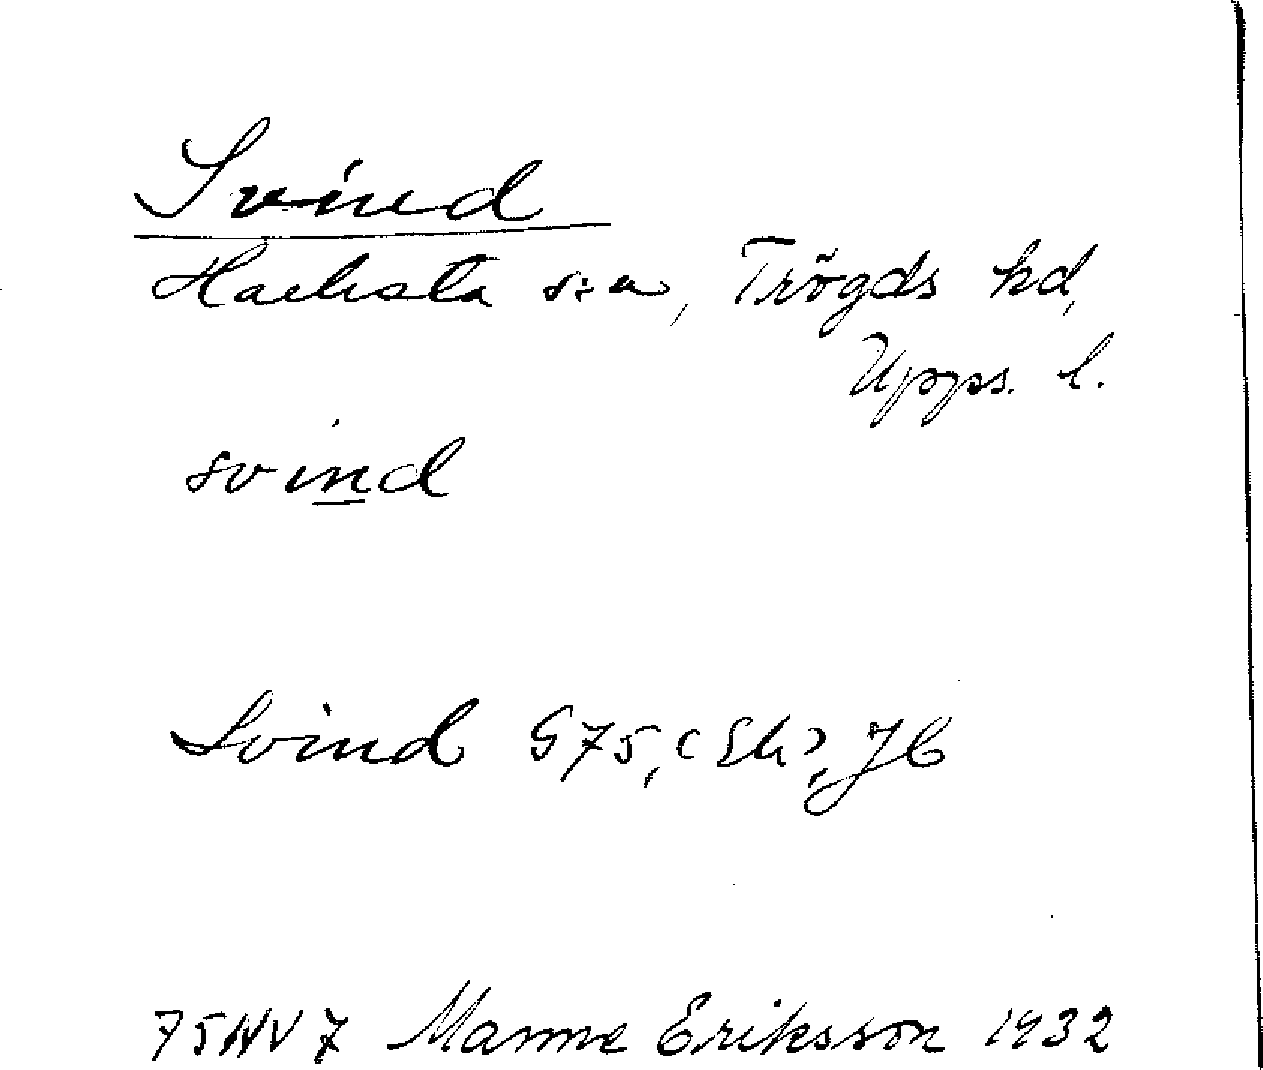 Svind
Hacksta s:n, Trögds hd,
Upps. l.
svind
Svind G75, (Ek), JB
75NV7 Manne Eriksson 1932